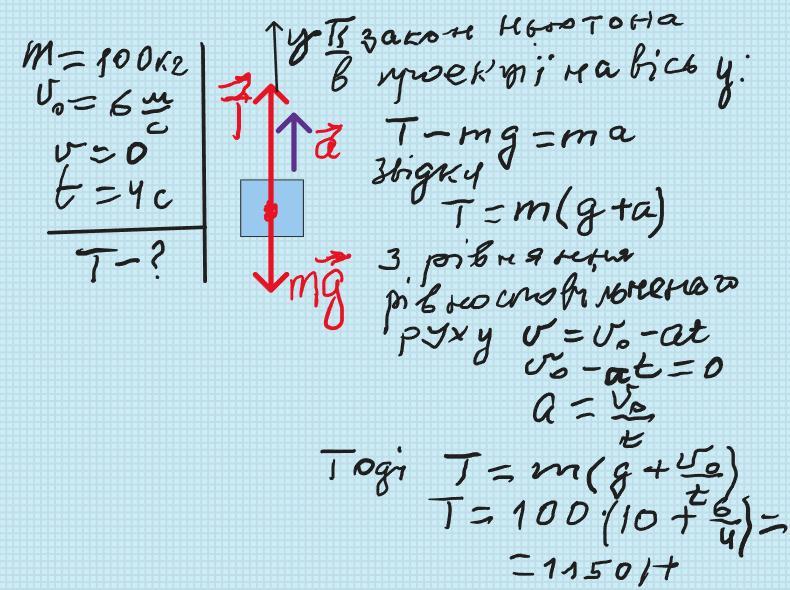 m = 100кг
v₀ = 6 м/с
v = 0
t = 4 с
T - ?
y
T
a
mg
II закон Ньютона
в проекції на вісь y:
T - mg = ma
звідки
T = m(g + a)
З рівняння
рівносповільненого
руху v = v₀ - at
v₀ - at = 0
a = v₀/t
Тоді T = m(g + v₀/t)
T = 100(10 + 6/4) =
= 1150 Н